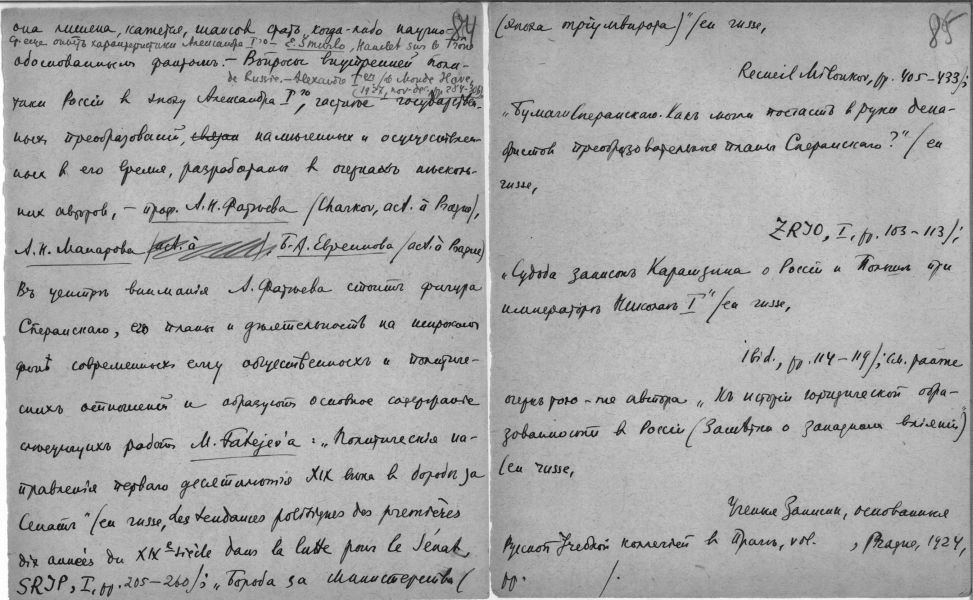 84
она лишена, кажется, шансов стать когда-либо научно-
Ср. еще опыт характеристики Александра I го — E. Šmurlo, Hamlet sur le Trône
обоснованнымъ фактомъ. — Вопросы внутренней поли-
de Russie. — Alexandre I er (le Monde Slave,
1927, nov-déc.
тики Россіи в эпоху Александра I го, частнѣе государствен-
ныхъ преобразованій, намѣченныхъ и осуществлен-
ныхъ в его время, разработаны в очеркахъ нѣсколь-
кихъ авторовъ, — проф. А.Н. Фатѣева (Charkov, act. à Prague),
А.Н. Макарова (act. à ), Б.А. Евреинова (act. à Prague)
Въ центрѣ вниманія А. Фатѣева стоитъ фигура
Сперанскаго, его планы и дѣятельность на широкомъ
фонѣ современныхъ ему общественныхъ и политиче-
скихъ отношеній и образуютъ основное содержаніе
слѣдующихъ работъ M. Fatejev'a: „Политическія на-
правленія перваго десятилѣтія XIX вѣка в борьбѣ за
Сенатъ" (en russe, Les tendances politiques des premières
dix années du XIX e siècle dans la lutte pour le Sénat,
SRIP, I, pp. 205–260); „Борьба за министерства (
85
(эпоха тріумвирата)" (en russe,
Recueil Milonkov, pp. 405–433);
„Бумаги Сперанскаго. Какъ могли попасть в руки дека-
бристов преобразовательные планы Сперанскаго?" (en
russe,
ZRIO, I, pp. 103–113);
„Судьба записокъ Карамзина о Россіи и Польшѣ при
императорѣ Николаѣ I" (en russe,
ibid., pp. 114–119); см. также
очеркъ того-же автора „Къ исторіи юридической обра-
зованности в Россіи (Замѣтки о западномъ вліяніи)
(en russe,
Ученыя Записки, основанныя
Русской Учебной коллегіей в Прагѣ, vol. , Prague, 1924,
pp. ).